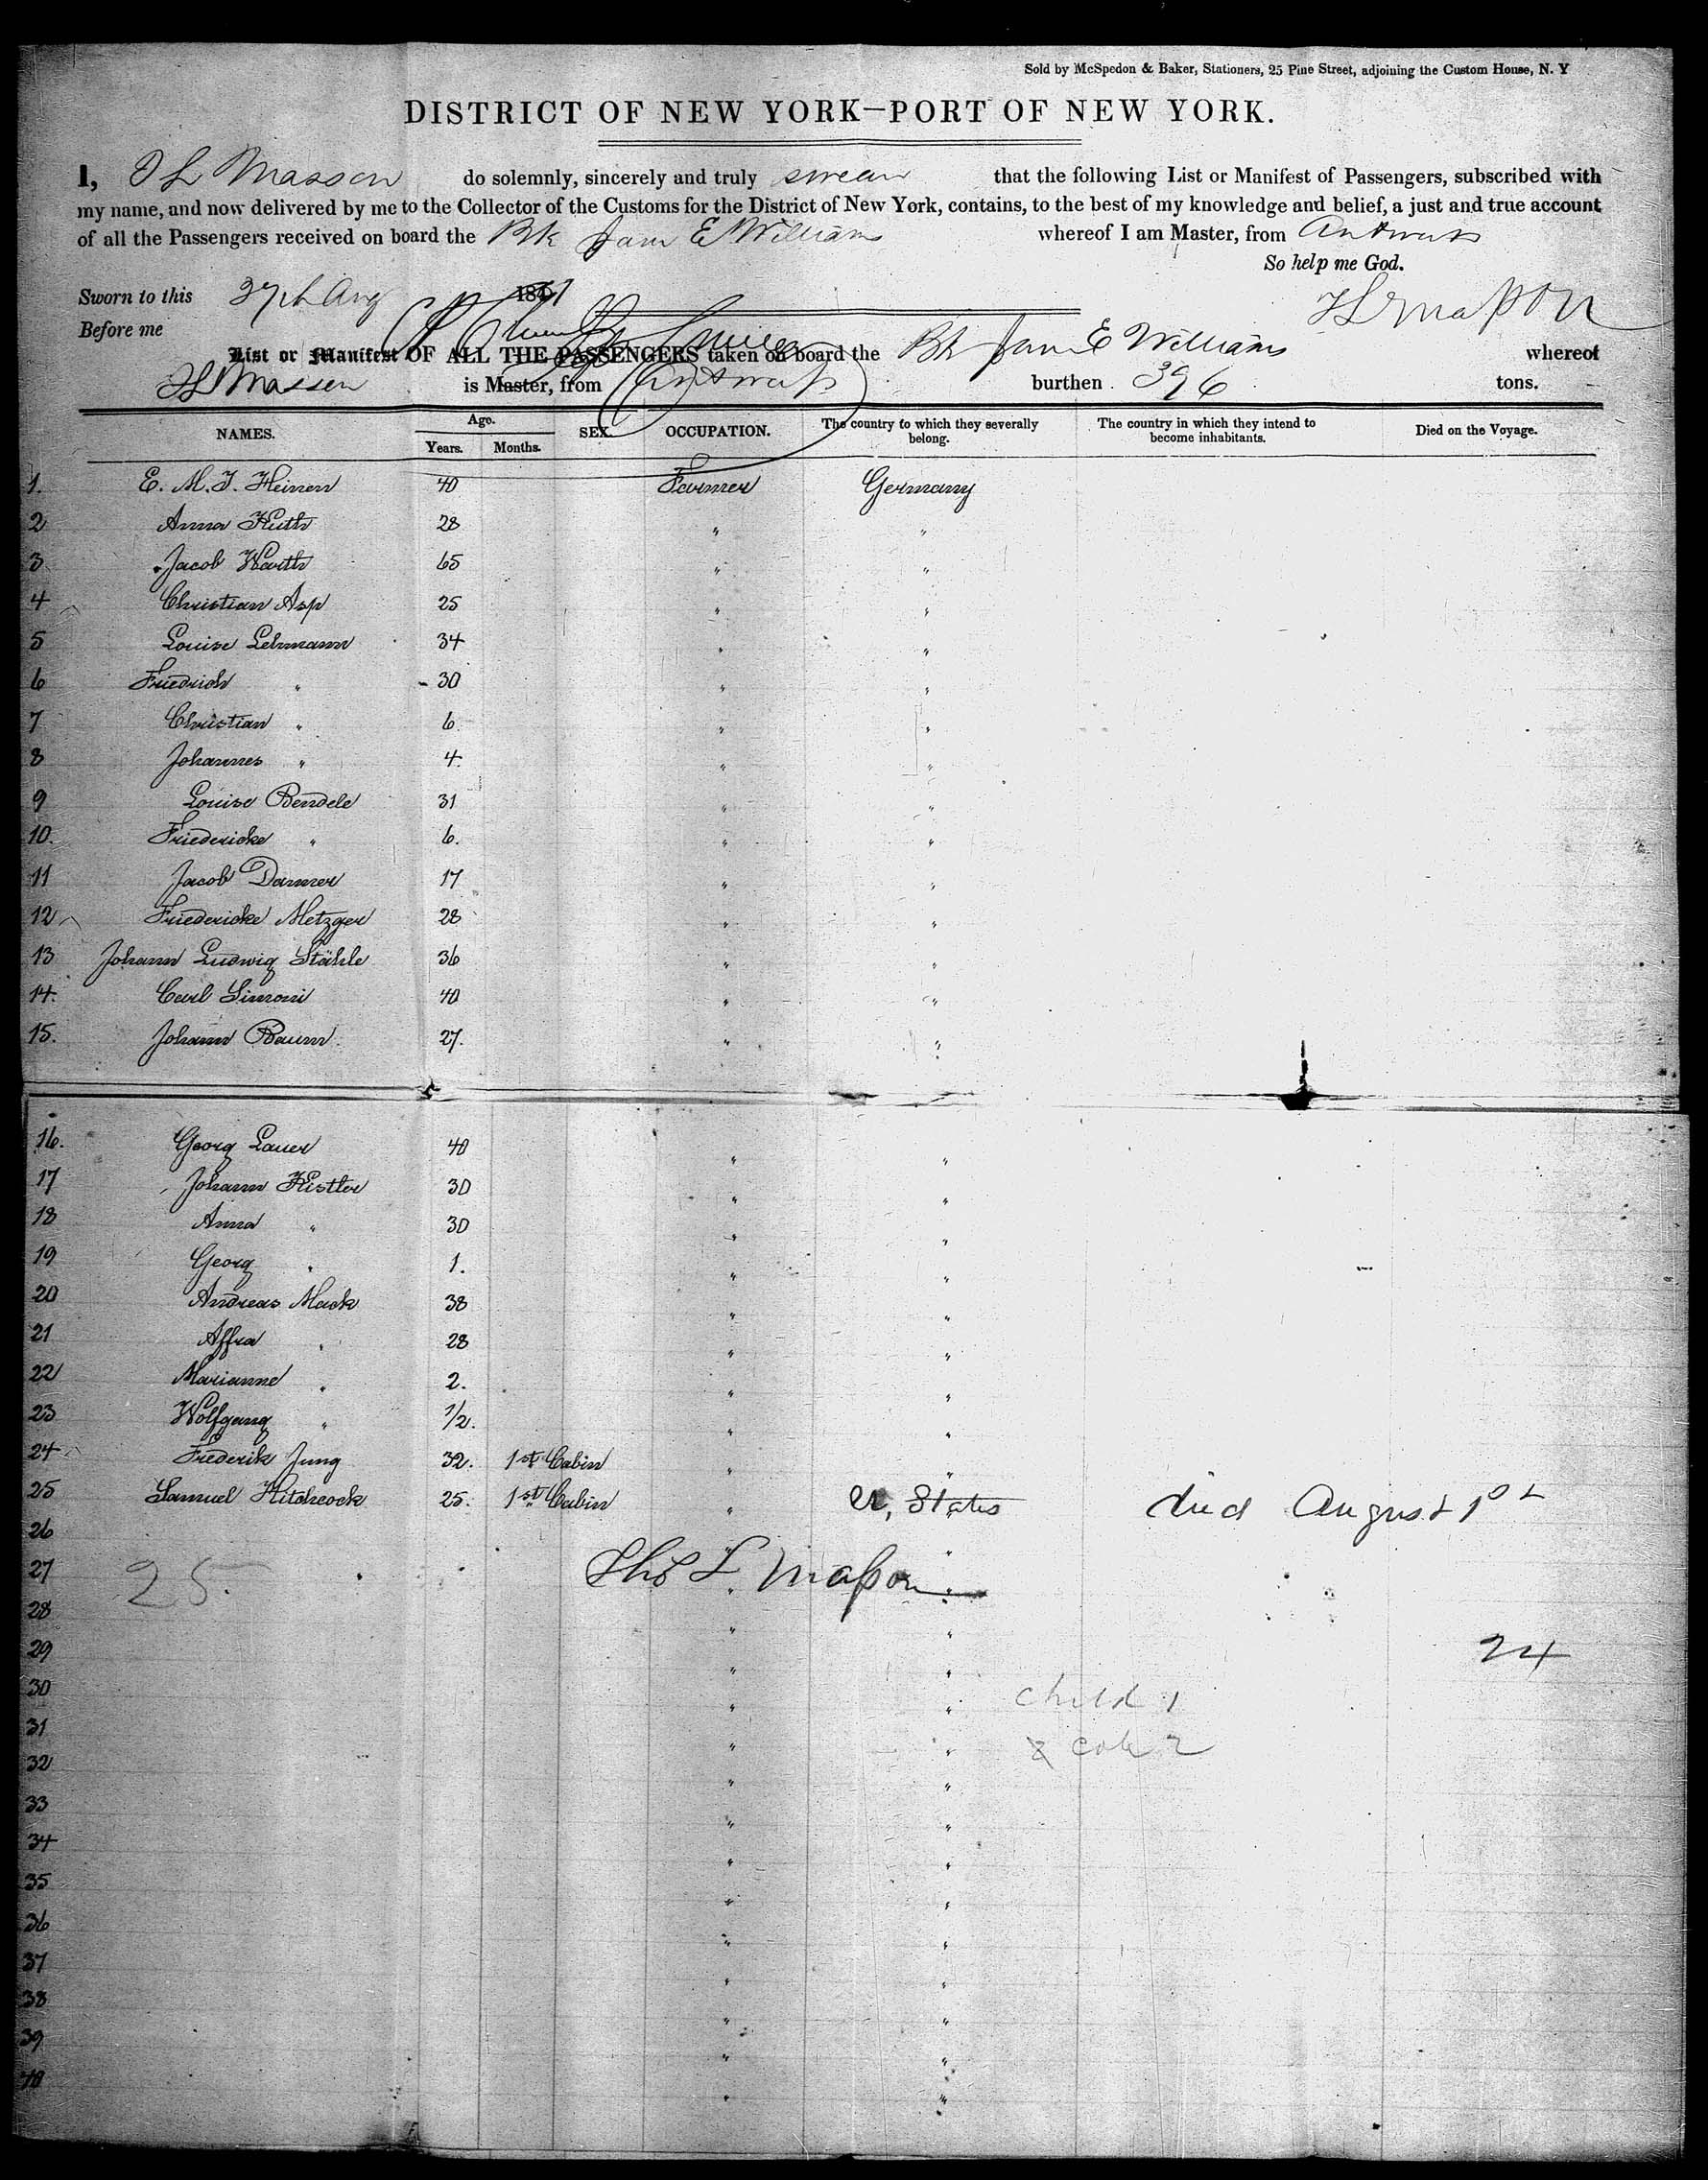 Sold by McSpedon & Baker, Stationers, 25 Pine Street, adjoining the Custom House, N. Y
DISTRICT OF NEW YORK—PORT OF NEW YORK.
I, T L Masson do solemnly, sincerely and truly swear that the following List or Manifest of Passengers, subscribed with
my name, and now delivered by me to the Collector of the Customs for the District of New York, contains, to the best of my knowledge and belief, a just and true account
of all the Passengers received on board the Bk Jane E Williams whereof I am Master, from Antwerp
So help me God.
Sworn to this Aug 1861
T L Masson
Before me
List or Manifest OF ALL THE PASSENGERS taken on board the Bk Jane E Williams whereof
T L Masson is Master, from Antwerp burthen 396 tons.
NAMES. Age. Years. Months. SEX. OCCUPATION. The country to which they severally belong. The country in which they intend to become inhabitants. Died on the Voyage.
1. E. M. J. Heinen 40 Farmer Germany
2 Anna Huth 28 " "
3 Jacob Warth 65 " "
4 Christian Asp 25 " "
5 Louise Lehmann 34 " "
6 Friedrich " 30 " "
7 Christian " 6 " "
8 Johannes " 4. " "
9 Louise Bendele 31 " "
10. Friedericke " 6. " "
11 Jacob Danner 17 " "
12 Friedericke Metzger 28 " "
13 Johann Ludwig Stähle 36 " "
14. Carl Simoni 40 " "
15. Johann Baum. 27. " "
16. Georg Lauer 40 " "
17 Johann Kistler 30 " "
18 Anna " 30 " "
19 Georg " 1. " "
20 Andreas Mack 38 " "
21 Affra " 28 " "
22 Marianne " 2. " "
23 Wolfgang " 1/2. " "
24 Frederik Jung 32. 1st Cabin " "
25 Samuel Hitchcock 25. 1st Cabin " U, States died August 1st
26 " "
27 25. Thos L Masson " "
28 " "
29 " " 24
30 " " Child 1
31 " " 2
32 " "
33 " "
34 " "
35 " "
36 " "
37 " "
38 " "
39 " "
40 " "